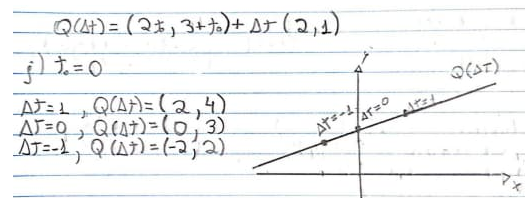 Q(Δt) = (2t₀, 3+t₀) + Δt (2,1)
j) t₀ = 0
Δt=1, Q(Δt)=(2,4)
Δt=0, Q(Δt)=(0,3)
Δt=-1, Q(Δt)=(-2,2)
y
Q(Δt)
Δt=-1
Δt=0
Δt=1
x